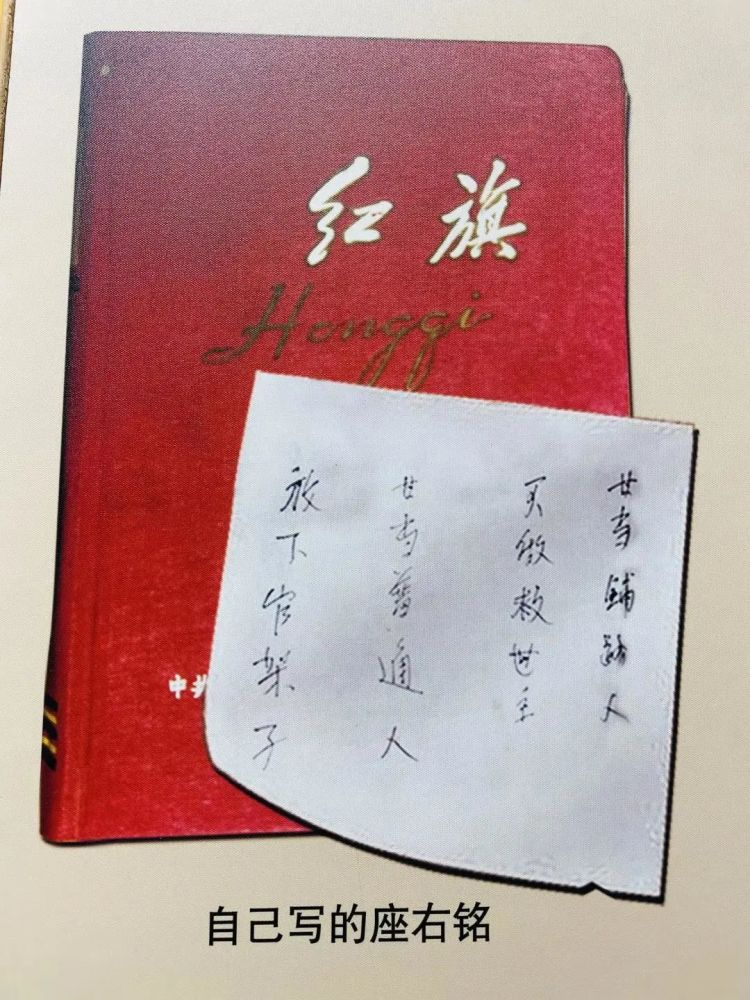 红旗
Hongqi
中共
甘当鋪路人
做救世主
甘当普通人
放下官架子
自己写的座右铭